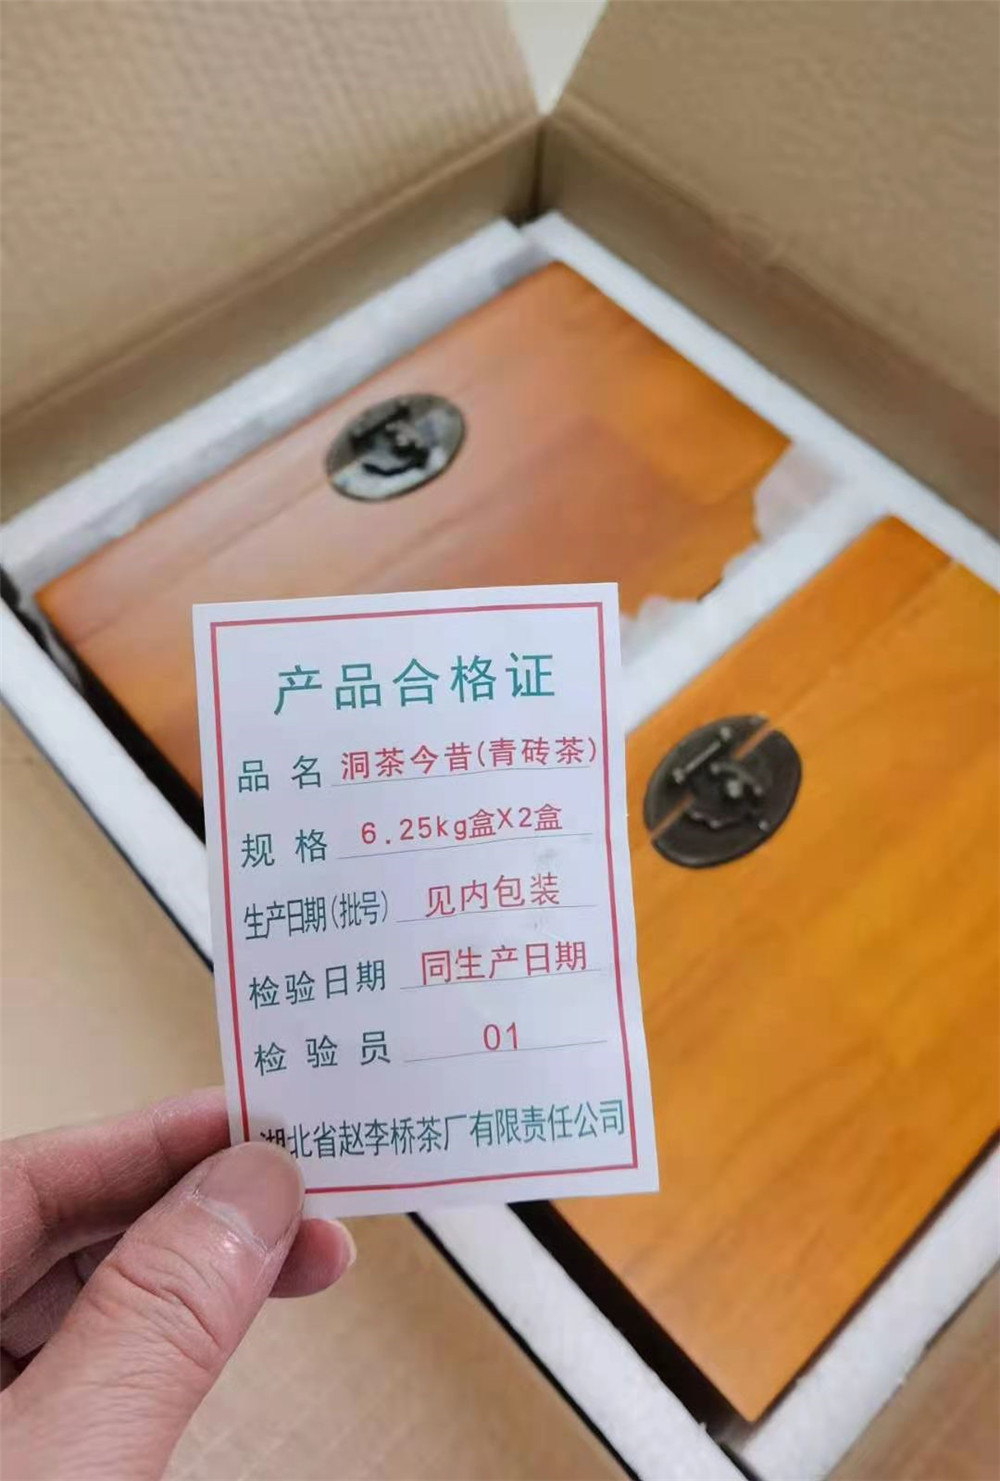 产品合格证
品名 洞茶今昔(青砖茶)
规格 6.25kg盒X2盒
生产日期(批号) 见内包装
检验日期 同生产日期
检验员 01
湖北省赵李桥茶厂有限责任公司